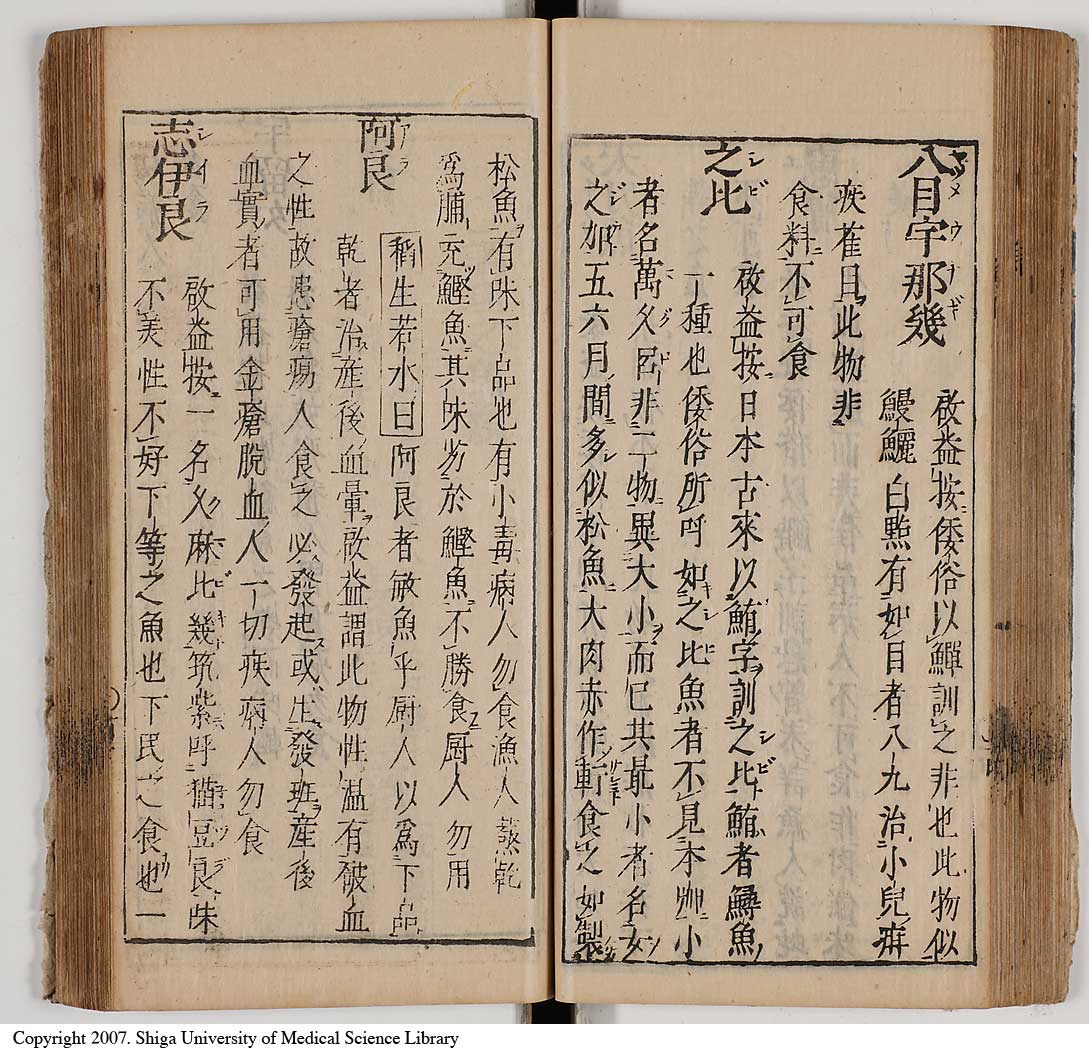 八目宇那幾
啟益按倭俗以鱓訓之非也此物似
鰻鱺白㸃有如目者八九治小兒疳
疾萑曰此物非
食料不可食
之比
啟益按日本古來以鮪字訓之比鮪者鱘魚
一種也倭俗所呼如之比魚者不見本艸小
者名萬久呂非一物異大小而已其最小者名女
之加五六月間多似松魚大肉赤作軒食之如製
松魚有味下品也有小毒病人勿食漁人蒸乾
爲脯充鰹魚其味劣於鰹魚不勝食厨人勿用
阿良
稻生若水曰阿良者敏魚乎厨人以爲下品
乾者治產後血暈啟益謂此物性溫有破血
之性故患瘡瘍人食之必發起或生發班產後
血實者可用金瘡脫血人一切疾病人勿食
志伊良
啟益按一名久麻比幾筑紫呼猶豆良味
不美性不好下等之魚也下民之食也一
Copyright 2007. Shiga University of Medical Science Library